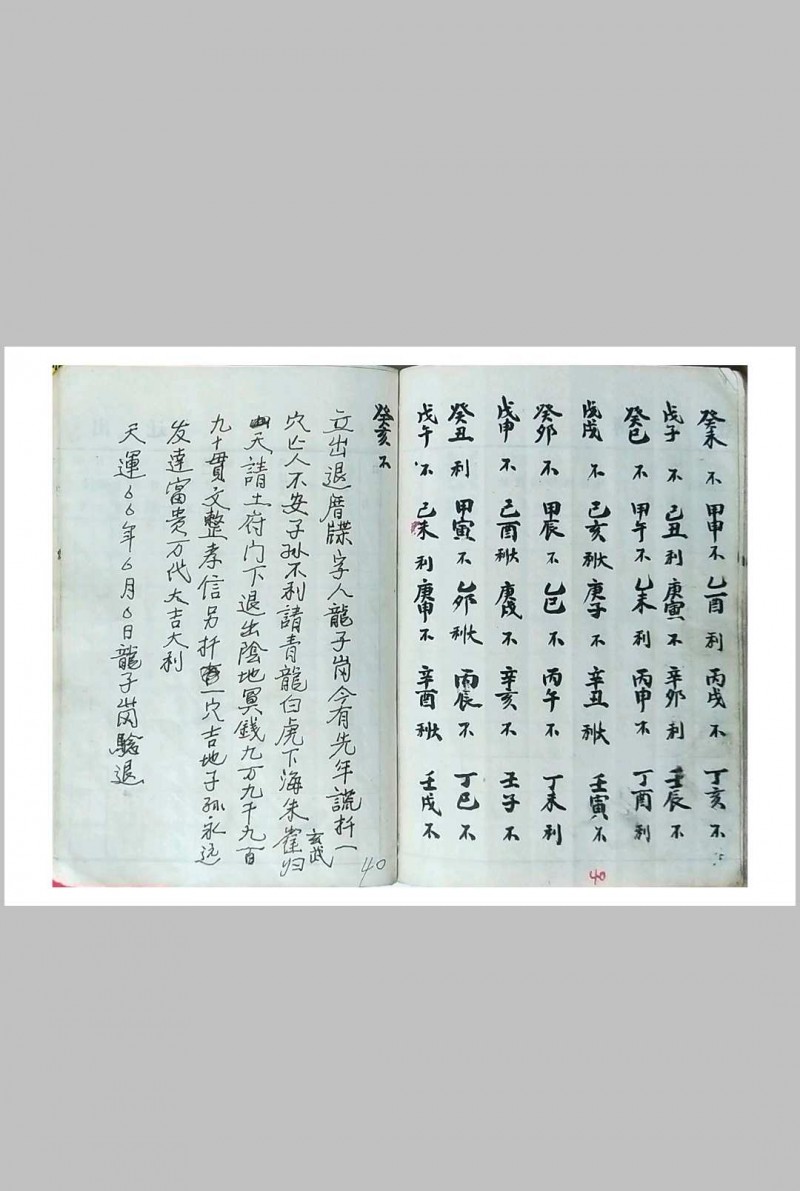 癸未不 甲申不 乙酉利 丙戌不 丁亥不
戊子不 己丑利 庚寅不 辛卯利 壬辰不
癸巳不 甲午不 乙未利 丙申不 丁酉利
戊戌不 己亥大利 庚子不 辛丑大利 壬寅不
癸卯不 甲辰不 乙巳不 丙午不 丁未利
戊申不 己酉大利 庚戌不 辛亥不 壬子不
癸丑利 甲寅不 乙卯大利 丙辰不 丁巳不
戊午不 己未利 庚申不 辛酉大利 壬戌不
40
癸亥不
立出退厝牒字人龍子崗今有先年謊扦一
穴亡人不安子孫不利請青龍白虎下海朱雀玄武归
天請土府门下退出陰地冥錢九万九千九百
九十貫文整孝信另扦一穴吉地子孫永远
发達富贵万代大吉大利
天運66年6月6日龍子崗驗退
40